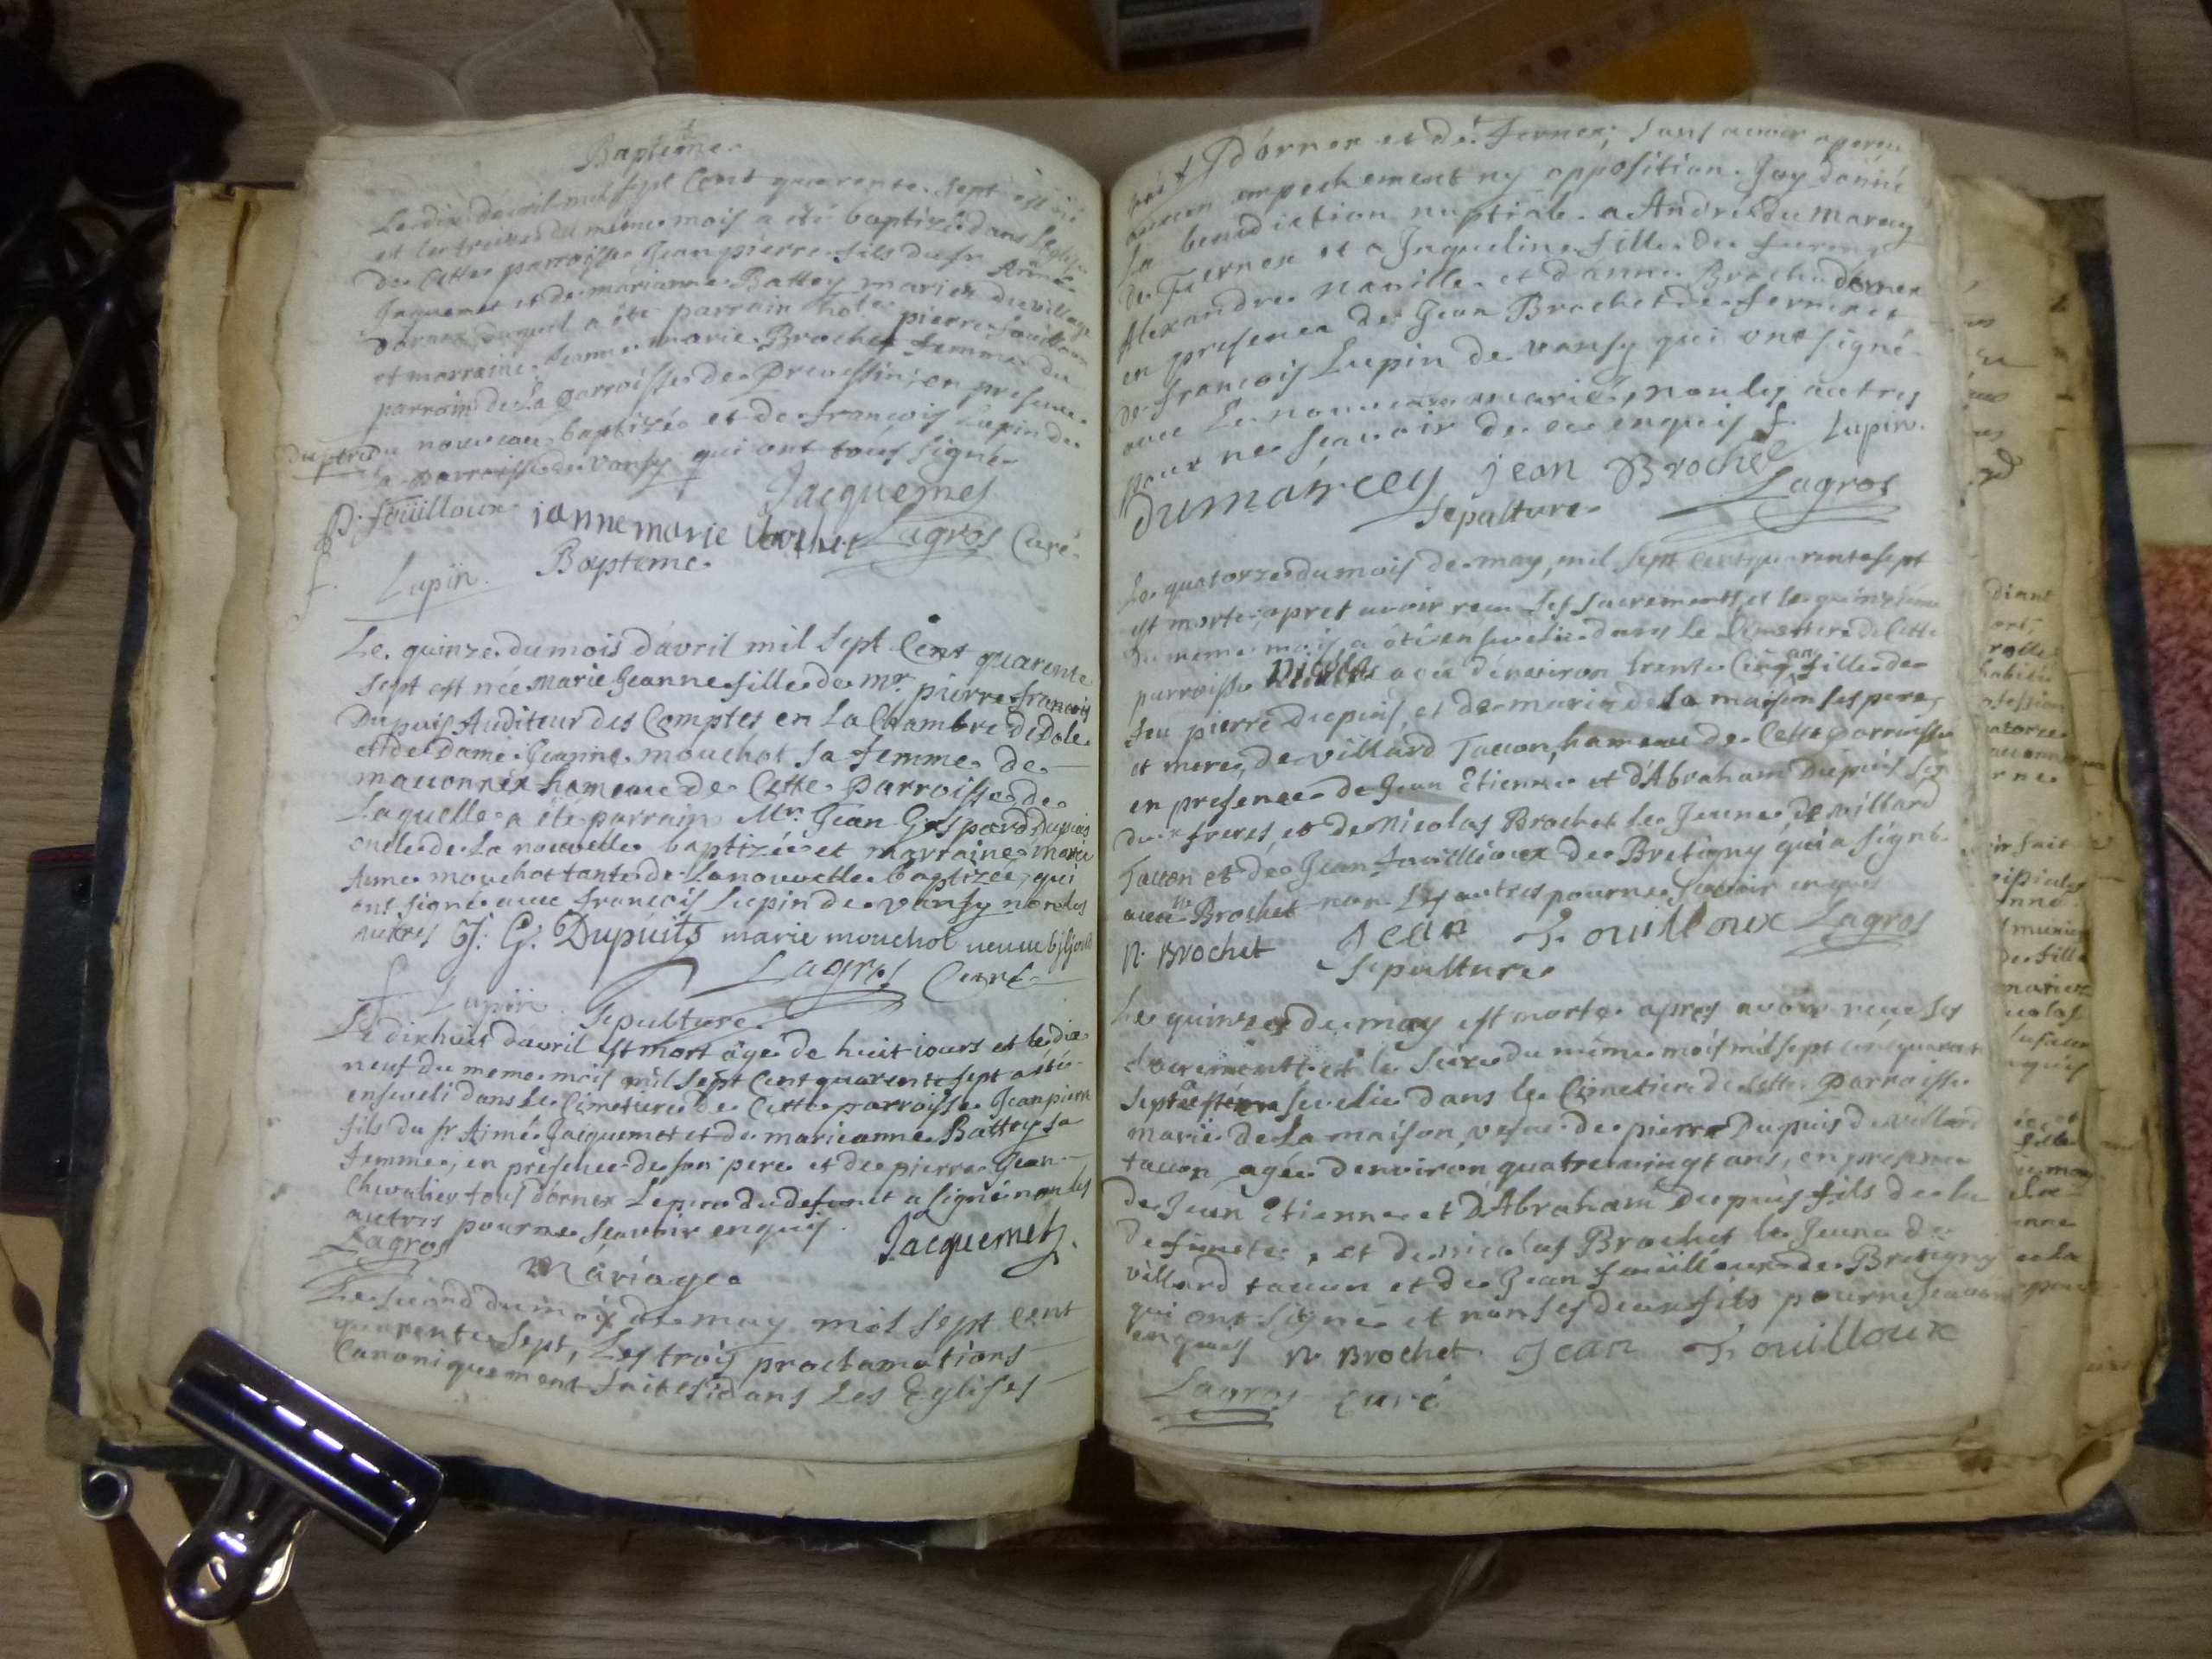 Baptême.
Le dix d'avril mil sept Cent quarente sept est né
et le treize du même mois a été baptizé dans l'eglise
de Cette parroisse Jean pierre fils du sr Aimé
Jaquemet et de marianne Battey mariés du village
d'ornex duquel a été parrain hote pierre fouilloux
et marraine Jeanne marie Brochet femme du
parrain de la parroisse de Prevessin; en presence
du pere du nouveau baptizé et de françois Lupin de
la parroisse de Vansy qui ont tous signé
P. foüilloux Jacquemet
janne marie Brochet Lagros Curé
f. Lupin. Bapteme
Le quinze du mois d'avril mil Sept Cent quarente
sept est née Marie Jeanne fille de Mr. pierre francois
Dupuis Auditeur des Comptes en La Chambre de Dole
et de Dame Jeanne mouchot sa femme de
mauconnex hameau de Cette Parroisse de
Laquelle a été parrain Mr. Jean Gaspard Dupuis
oncle de La nouvelle baptizée et marraine marie
Anne mouchot tante de La nouvelle baptizée, qui
ont signé avec francois Lupin de vansy non les
autres J. G. Dupuits marie mouchot veuve
f Lupin Lagros Curé
Sepulture
Le dixhuit d'avril est mort âgé de huit iours et le dix
neuf du meme mois mil Sept Cent quarente sept a été
enseveli dans Le Cimetiere de Cette parroisse Jean pierre
fils du sr Aimé Jacquemet et de marieanne Battey sa
femme, en présence de son pere et de pierre Jean
Chevalier tous d'ornex Le pere du defunct a signé non les
autres pour ne sçavoir enquis.
Lagros Jacquemet
Mariage
Le second du mois de may mil sept Cent
quarente sept, Les trois proclamations
Canoniquement faites dans Les Eglises
d'ornex et de Fernex; sans avoir aperçu
aucun empechement ny opposition. J'ay donné
la benediction nuptiale a André du Marcey
de Fernex et a Jaqueline fille de
Alexandre Naville et d'anne Brochu d'ornex
en presence de Jean Brochet de fernex et
de francois Lupin de vansy qui ont signé
avec Le nouveau marié, non les autres
pour ne sçavoir de ce enquis f. Lupin.
Dumarcey jean Brochet Lagros
Sepulture
Le quatorze du mois de may, mil sept Cent quarente sept
est morte apret avoir receu Ses Sacrements et le quinzième
du meme mois a été ensevelie dans Le Cimettiere de Cette
parroisse Nicolas agée d'environ trente Cinq ans fille de
feu pierre Dupuis, et de marie de La maison ses pere
et mere, de villard Taccon, hameau de Cette parroisse
en presence de Jean Etienne et d'Abraham Dupuis ses
deux freres, et de Nicolas Brochet le Jeune de villard
Taccon et de Jean fouilloux de Bretigny qui a signé
avec Brochet non Les autres pour ne sçavoir enquis
N. Brochet Jean Fouilloux Lagros
Sepulture
Le quinze de may est morte apres avoir receu Ses
sacrements et le seize du même mois mil sept cent quarente
sept a été ensevelie dans le Cimetiere de cette Parroisse
marie de La maison, vefue de pierre Dupuis de villard
taccon agée denviron quatre vingt ans, en presence
de Jean Etienne et D'Abraham Dupuis fils de la
defuncte, et de nicolas Brochet le Jeune de
villard taccon et de Jean fouilloux de Bretigny
qui ont signé et non ses deux fils pour ne sçavoir
enquis N Brochet Jean Fouilloux
Lagros curé